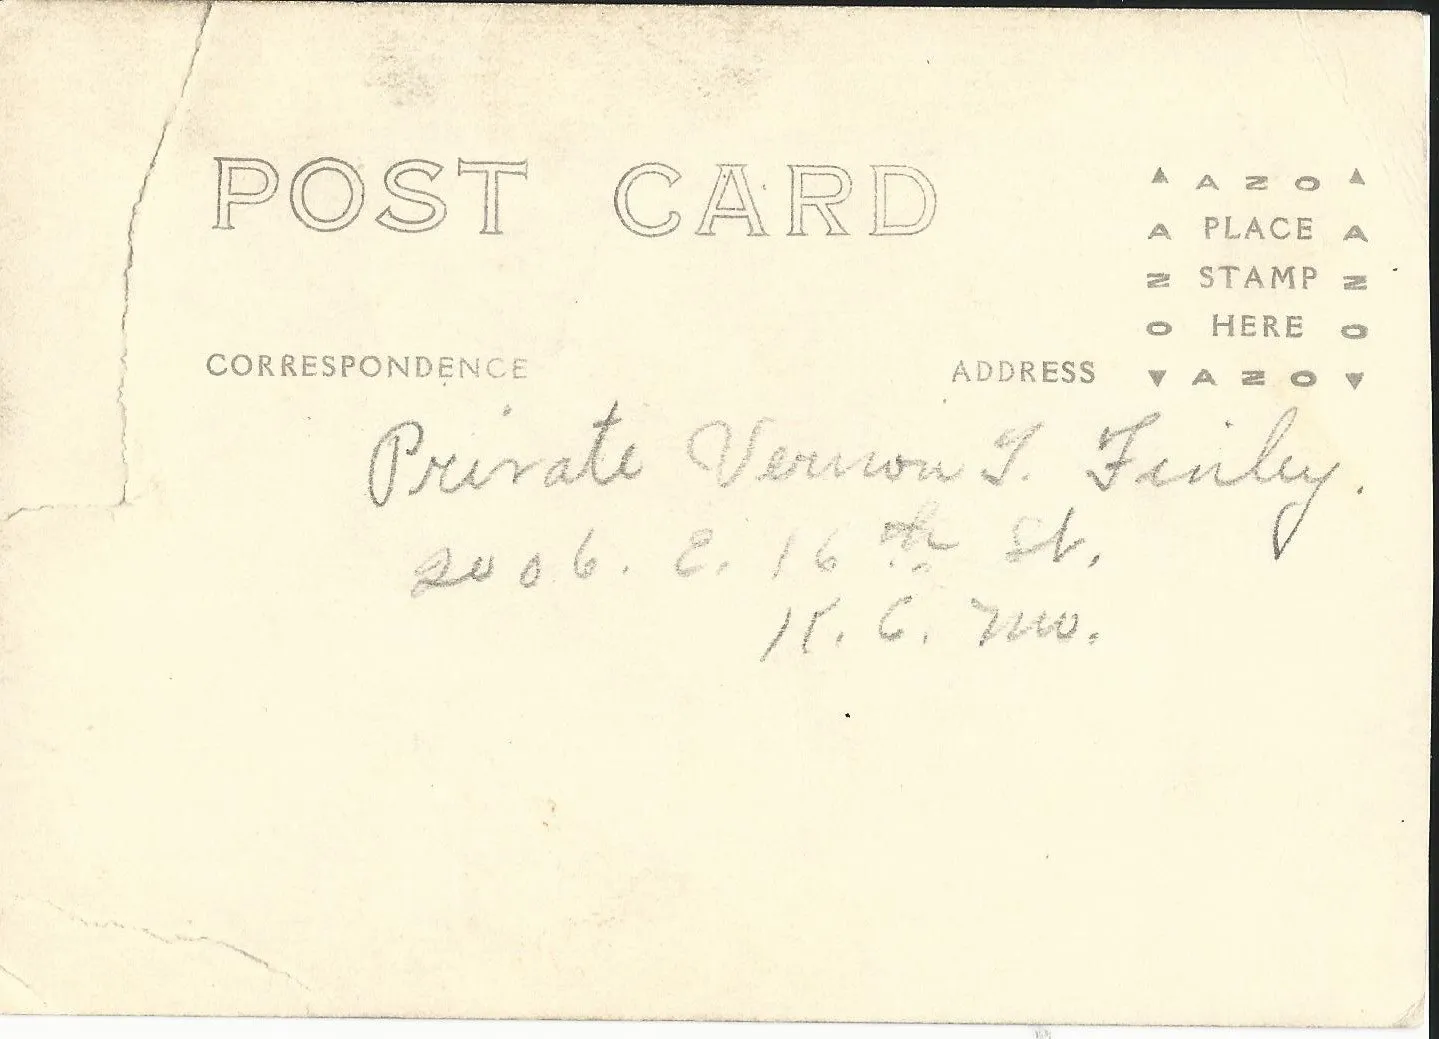 POST CARD
▲ A Z O ▲
A PLACE A
Z STAMP Z
O HERE O
▼ A Z O ▼
CORRESPONDENCE
ADDRESS
Private Vernon T. Finley.
2006. E. 16th St.
K. C. Mo.